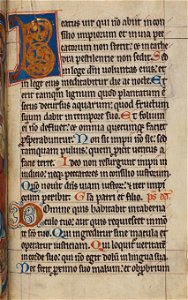 Beatus uir qui no abiit in con
silio impiorum et in uia pec
catorum non stetit: et in cathe
dra pestilencie non sedit. Sed
in lege dni uoluntas eius: et
in lege eius meditabitur die ac nocte. Et
erit tamqm lignum quod plantatum e
secus decursus aquarum: quod fructum
suum dabit in tempore suo. Et folium
ei no defluet: et omnia quecumq faciet
prosperabuntur. Non sic impii no sic: sed
tamquam puluis: quem proicit uentus a
facie terre. Ideo non resurgunt impii in
iudicio: neq peccatores in consilio iustorum.
Quo nouit dns uiam iustor: et iter impiorum
peribit. Gla patri et filio.
Domine quis habitabit in taberna
culo tuo: aut quis requiescet in mo
te sco tuo. Qui ingreditur sine macula et
operatur iusticiam. Qui loquit ueritate
in corde suo: qui no egit dolu in lingua sua.
Nec fecit proximo suo malum: et obprobrium